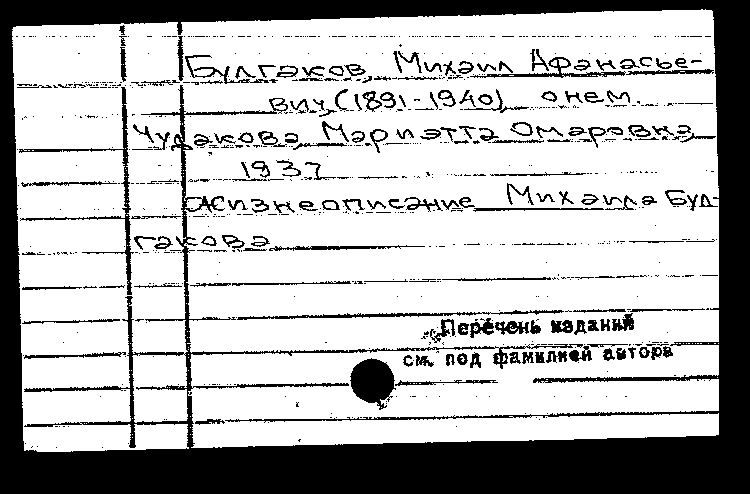 Булгаков, Михаил Афанасье-
вич, (1891-1940) о нем.
Чудакова, Мариэтта Омаровна,
1937
Жизнеописание Михаила Бул-
гакова
Перечень изданий
см. под фамилией автора